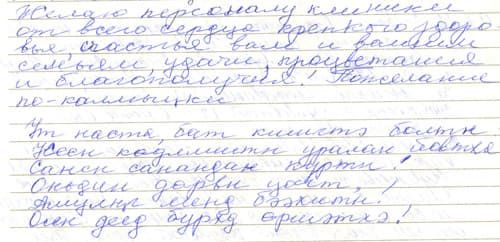 Желаю персоналу клиники
от всего сердца крепкого здоро-
вья, счастья вам и вашим
семьям, удачи, процветания
и благополучия! Пожелание
по-калмыцки
Ут наста, бат кишгтә болтн
уралан йовтха
Сансн санандан күртн!
Оньдин дөрвн цагт,
Амулң менд бәәхитн!
деед бурхд өршәтхә!